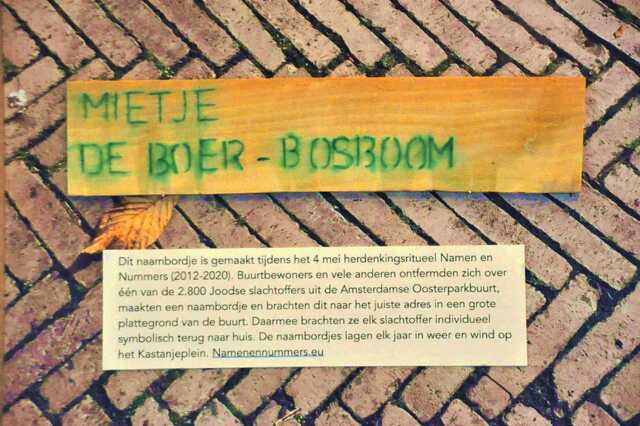 MIETJE
DE BOER - BOSBOOM
Dit naambordje is gemaakt tijdens het 4 mei herdenkingsritueel Namen en
Nummers (2012-2020). Buurtbewoners en vele anderen ontfermden zich over
één van de 2.800 Joodse slachtoffers uit de Amsterdamse Oosterparkbuurt,
maakten een naambordje en brachten dit naar het juiste adres in een grote
plattegrond van de buurt. Daarmee brachten ze elk slachtoffer individueel
symbolisch terug naar huis. De naambordjes lagen elk jaar in weer en wind op
het Kastanjeplein. Namenennummers.eu